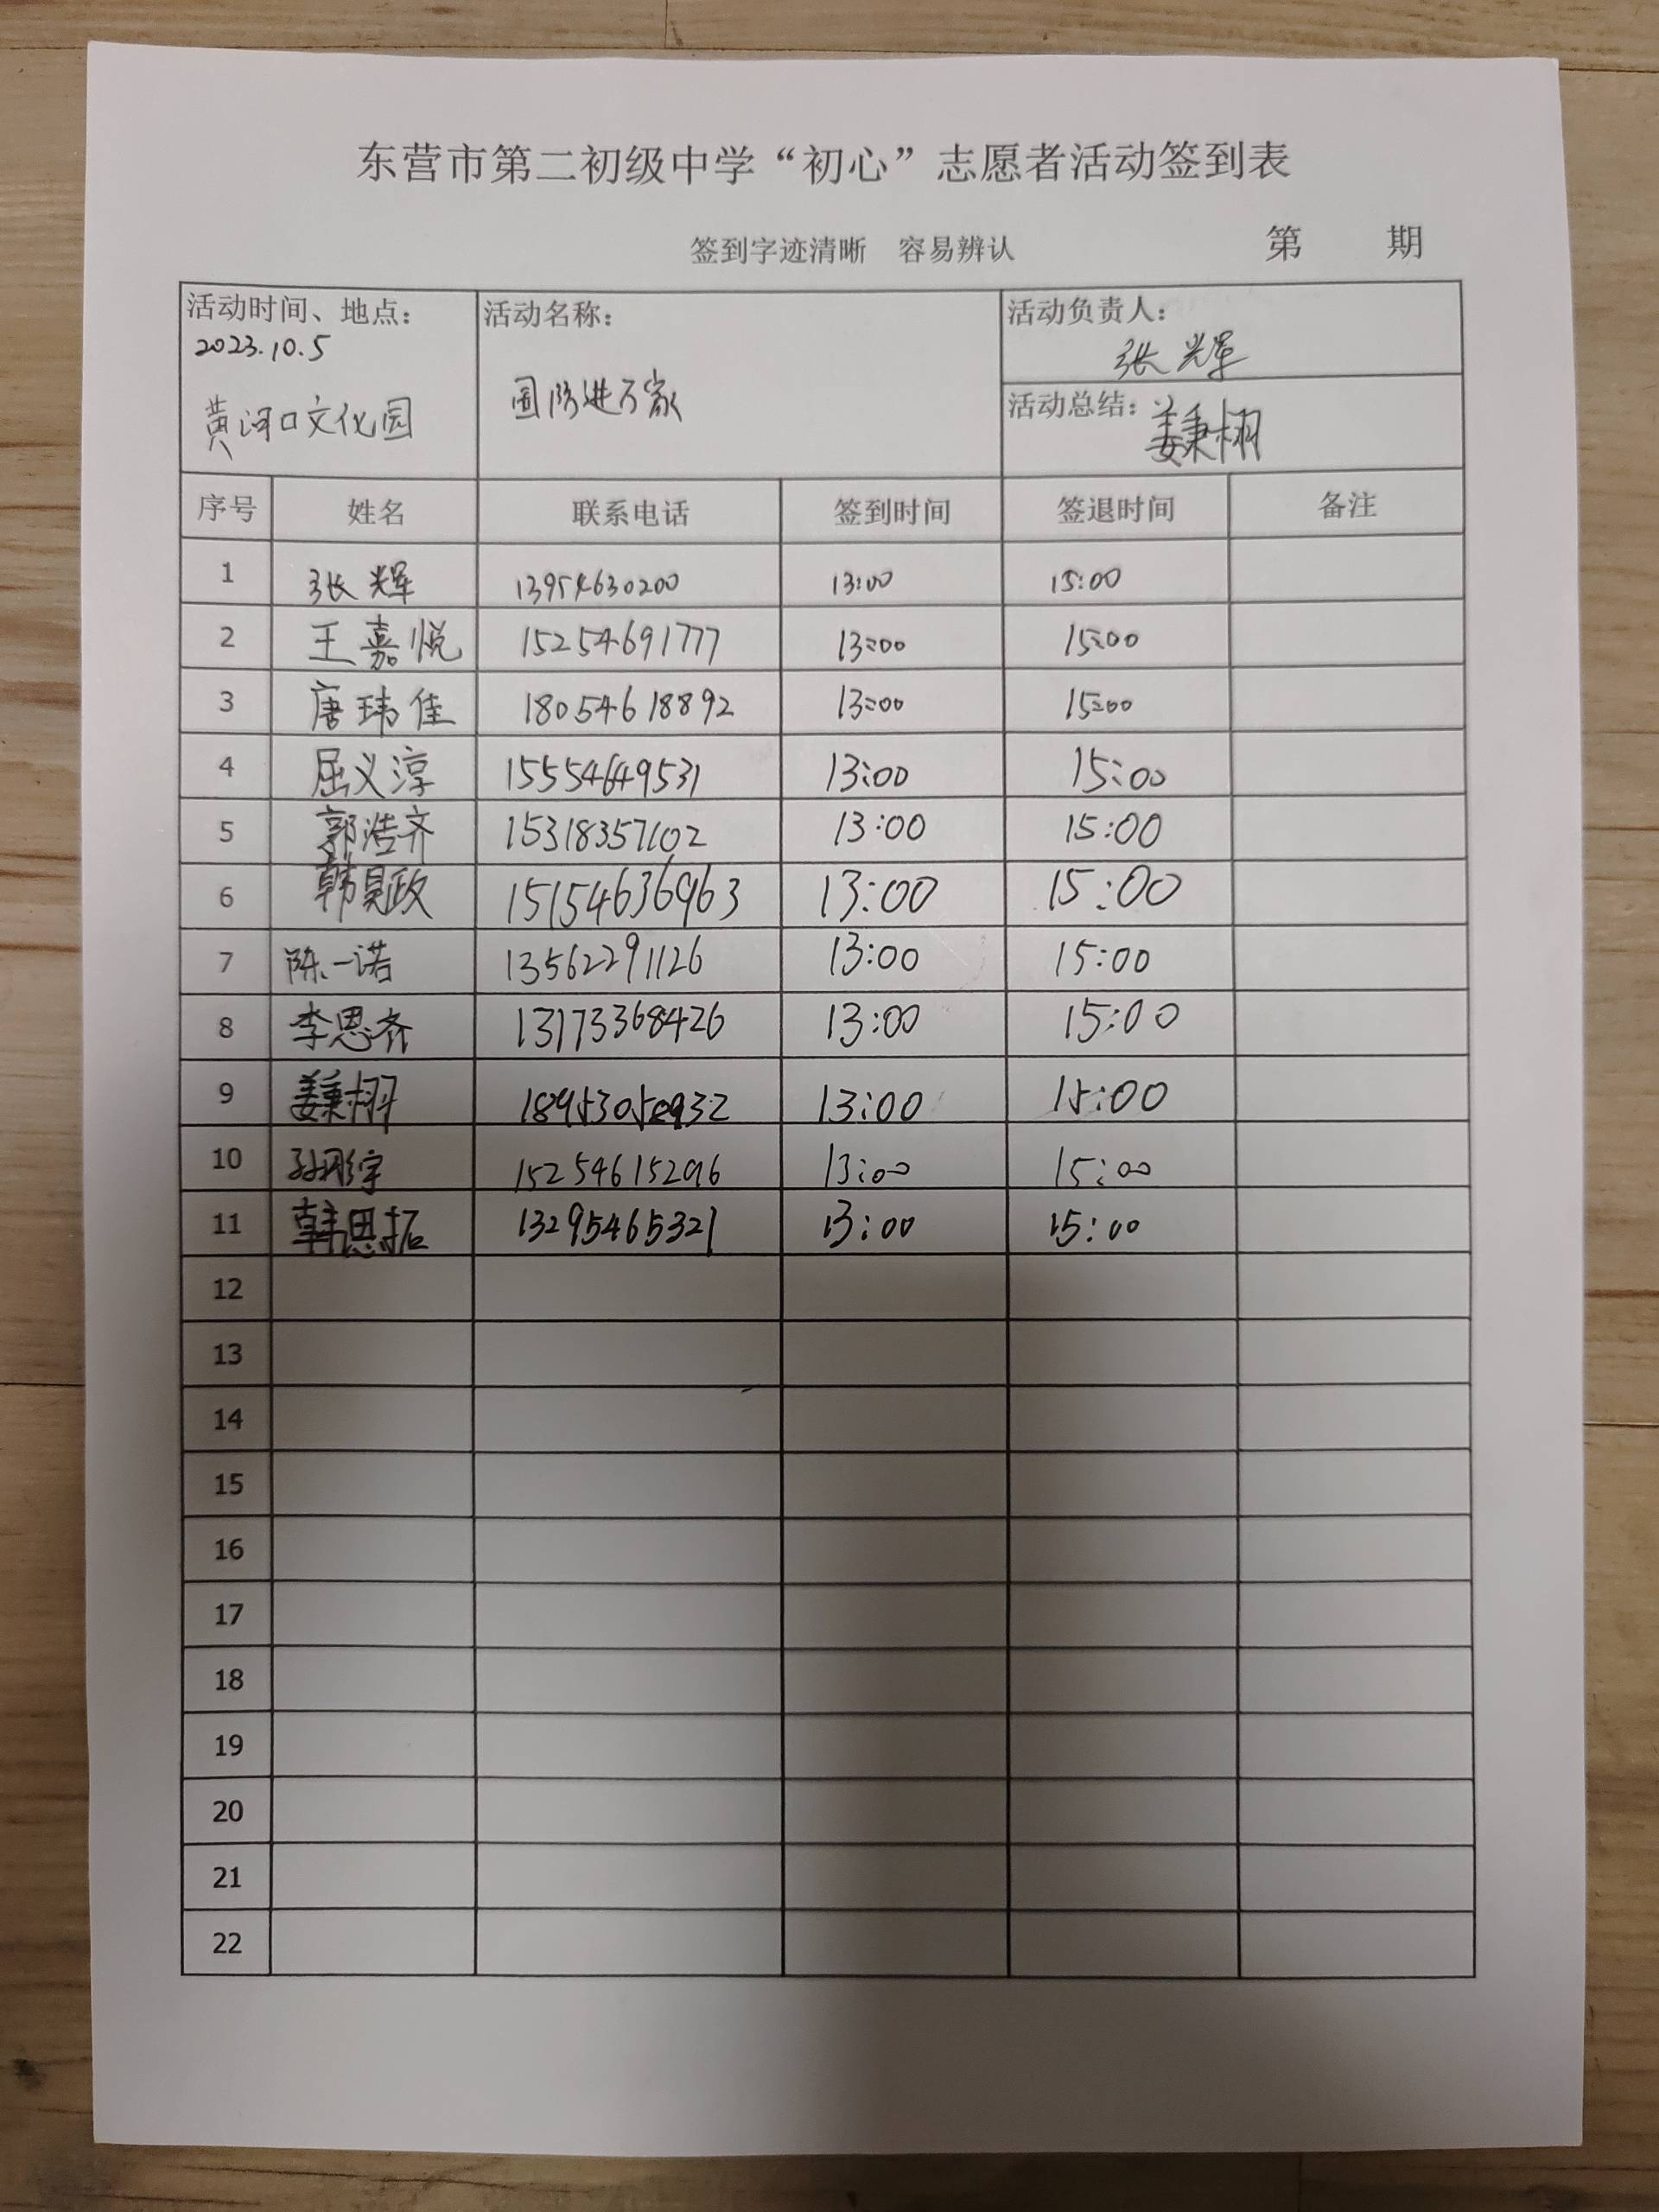 东营市第二初级中学“初心”志愿者活动签到表
签到字迹清晰 容易辨认 第 期
活动时间、地点：
2023.10.5
黄河口文化园
活动名称：
国防进万家
活动负责人：
张辉
活动总结：姜秉栩
序号 姓名 联系电话 签到时间 签退时间 备注
1 张辉 13954630200 13:00 15:00
2 王嘉悦 15254691777 13:00 15:00
3 唐玮佳 18054618892 13:00 15:00
4 屈义淳 15554649531 13:00 15:00
5 郭浩齐 15318357102 13:00 15:00
6 韩昊政 15154636963 13:00 15:00
7 陈一诺 13562291126 13:00 15:00
8 李思齐 13173368426 13:00 15:00
9 姜秉栩 13:00 15:00
10 孙彤宇 15254615296 13:00 15:00
11 韩思拓 13295465321 13:00 15:00
12
13
14
15
16
17
18
19
20
21
22